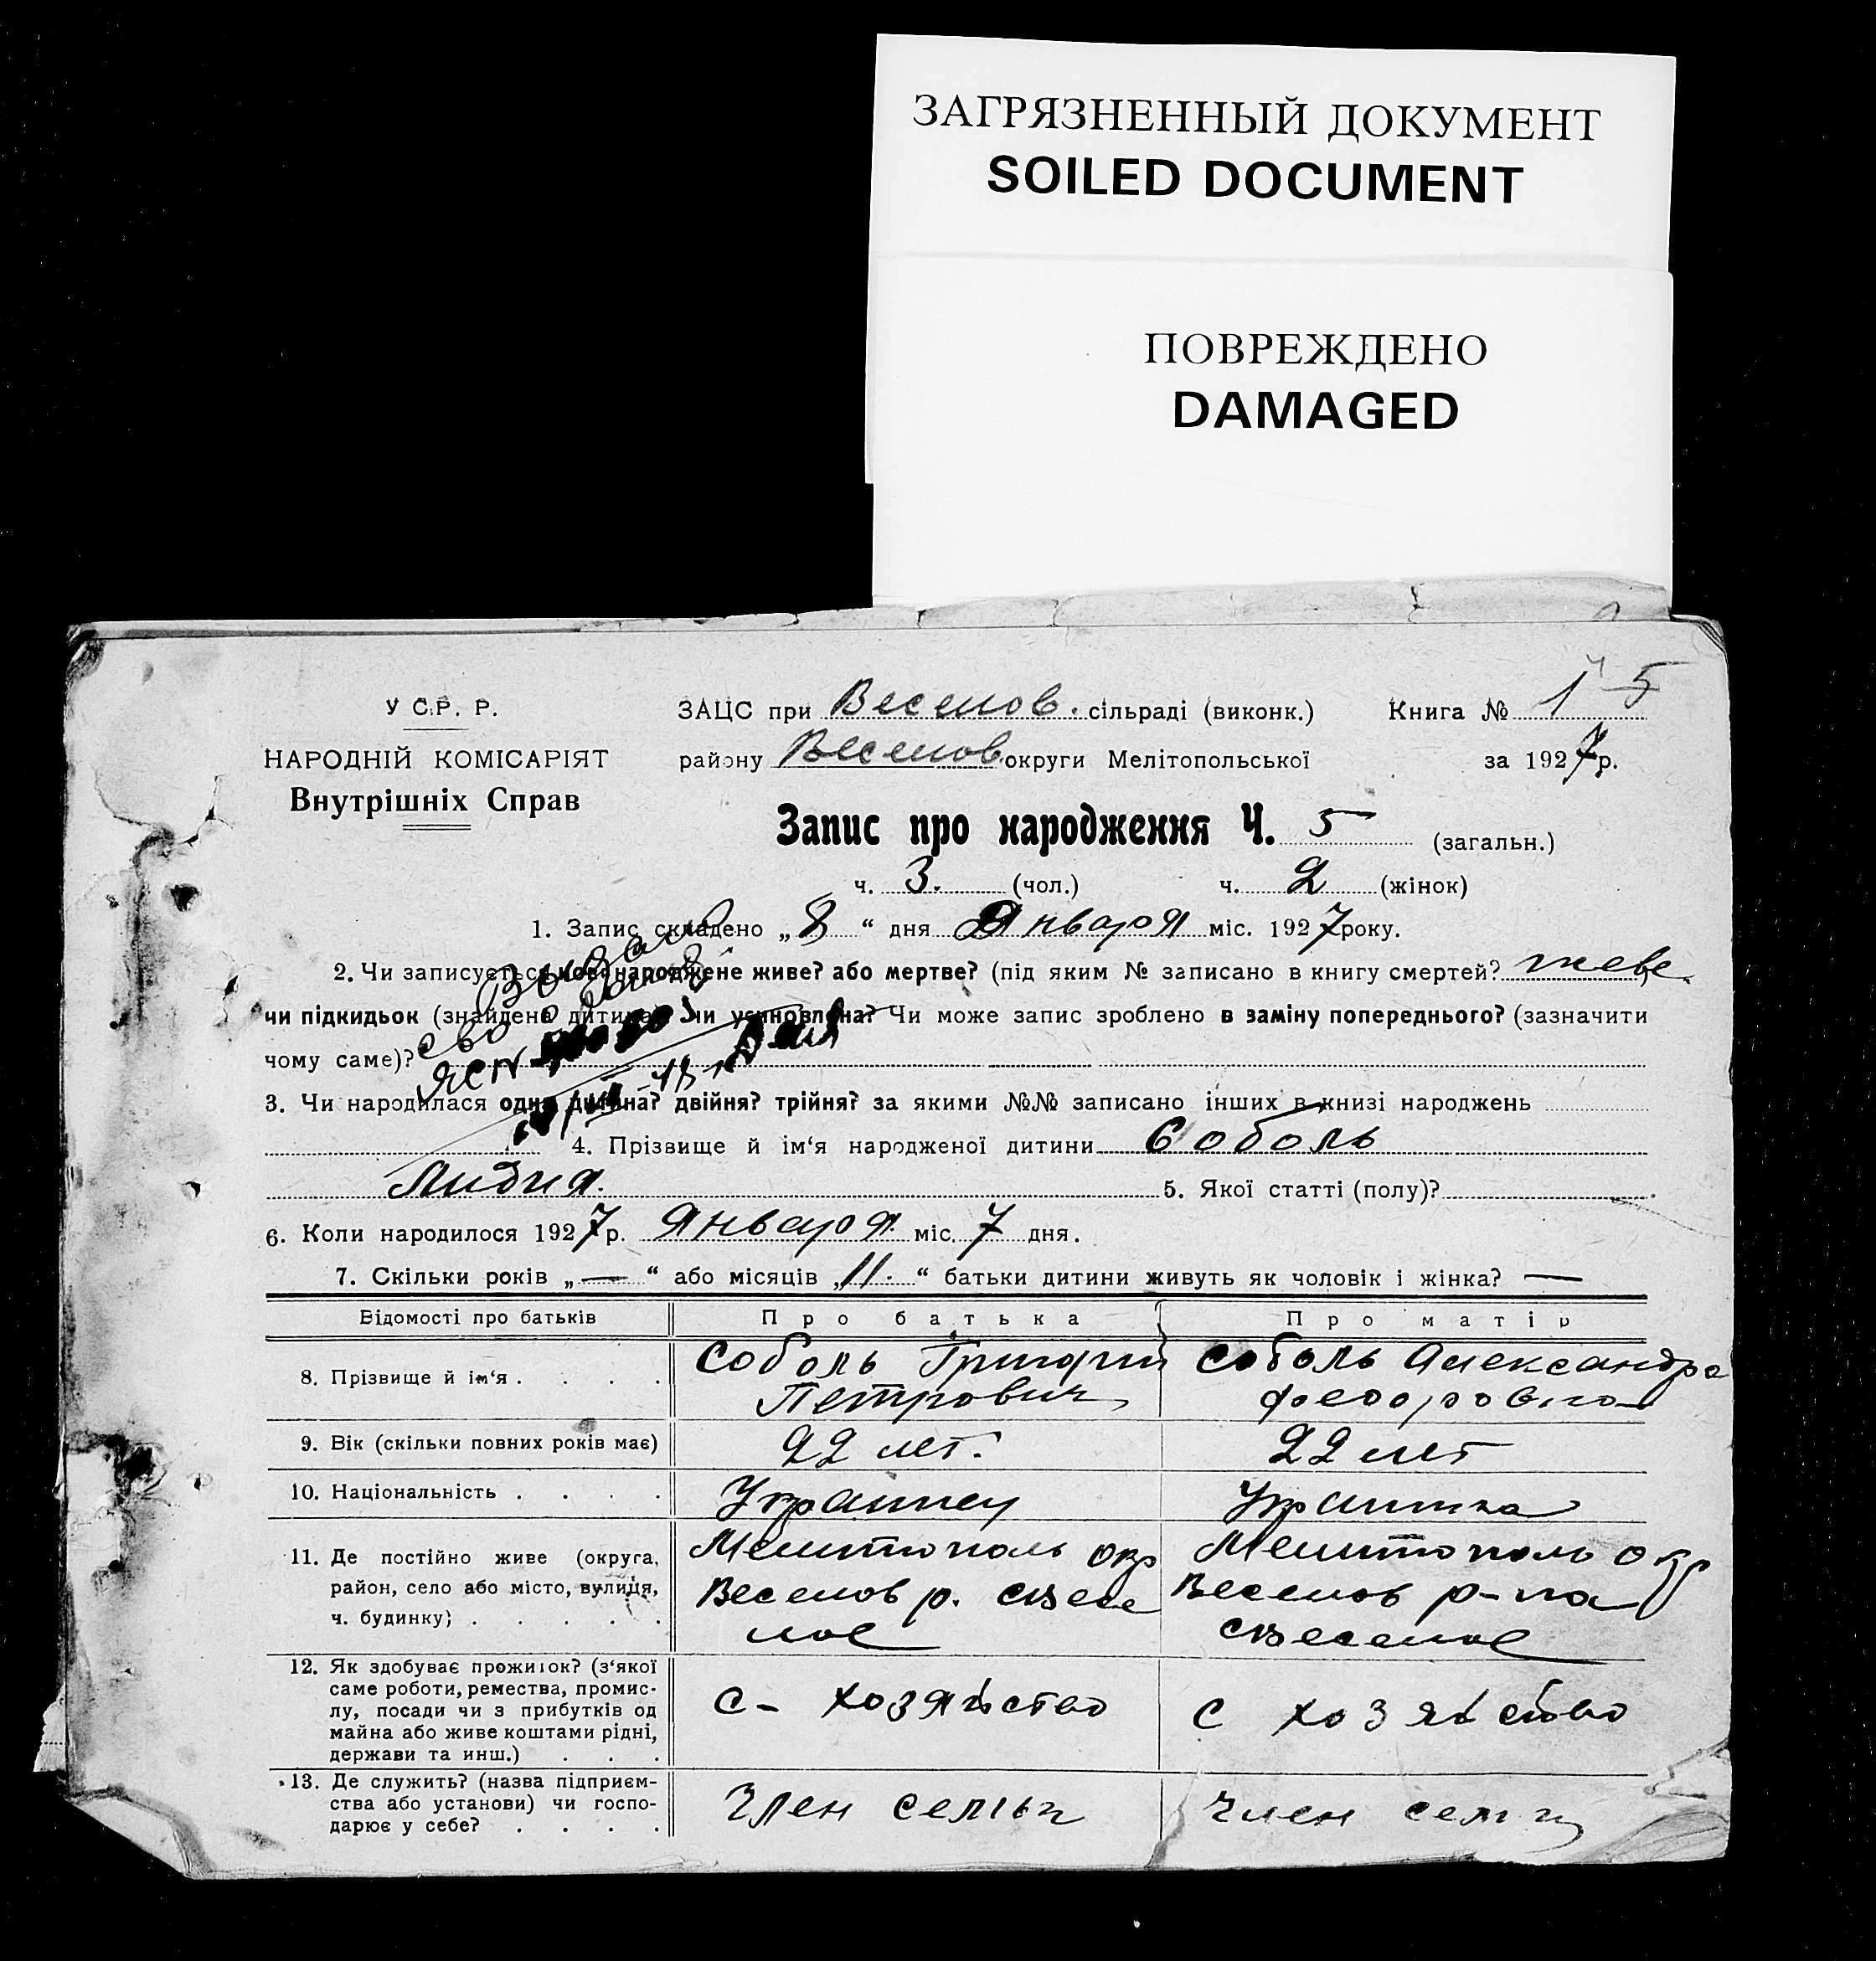 ЗАГРЯЗНЕННЫЙ ДОКУМЕНТ
SOILED DOCUMENT
ПОВРЕЖДЕНО
DAMAGED
5
У С.Р. Р.
НАРОДНІЙ КОМІСАРІЯТ
Внутрішніх Справ
ЗАЦС при Веселов. сільраді (виконк.) Книга № 1
району Веселов. округи Мелітопольської за 1927 р.
Запис про народження Ч. 5 (загальн.)
ч. 3. (чол.) ч. 2 (жінок)
1. Запис складено „8“ дня Января міс. 1927 року.
2. Чи записується новонароджене живе? або мертве? (під яким № записано в книгу смертей? живе.
чи підкидьок (знайдена дитина) чи усиновлена? Чи може запис зроблено в заміну попереднього? (зазначити
чому саме)?
3. Чи народилася одна дитина? двійня? трійня? за якими №№ записано інших в книзі народжень
4. Прізвище й ім‘я народженої дитини Соболь
Лидия. 5. Якої статті (полу)?
6. Коли народилося 1927 р. Января міс. 7 дня.
7. Скільки років „—“ або місяців „11.“ батьки дитини живуть як чоловік і жінка? —
Відомості про батьків Про батька Про матір
8. Прізвище й ім‘я . . . . Соболь Григорий Соболь Александра
Петрович Феодоровна
9. Вік (скільки повних років має) 22 лет. 22 лет
10. Національність . . . . Украинец Украинка
11. Де постійно живе (округа, Мелитополь окр Мелитополь окр
район, село або місто, вулиця, Веселов р. с Весе Веселов р-на
ч. будинку) . . . . . лое с Веселое
12. Як здобуває прожиток? (з‘якої
саме роботи, ремества, промис-
лу, посади чи з прибутків од с- хозяйство с хозяйство
майна або живе коштами рідні,
держави та инш.) . . .
13. Де служить? (назва підприєм-
ства або установи) чи госпо- Член семьи Член семьи
дарює у себе? . . . .